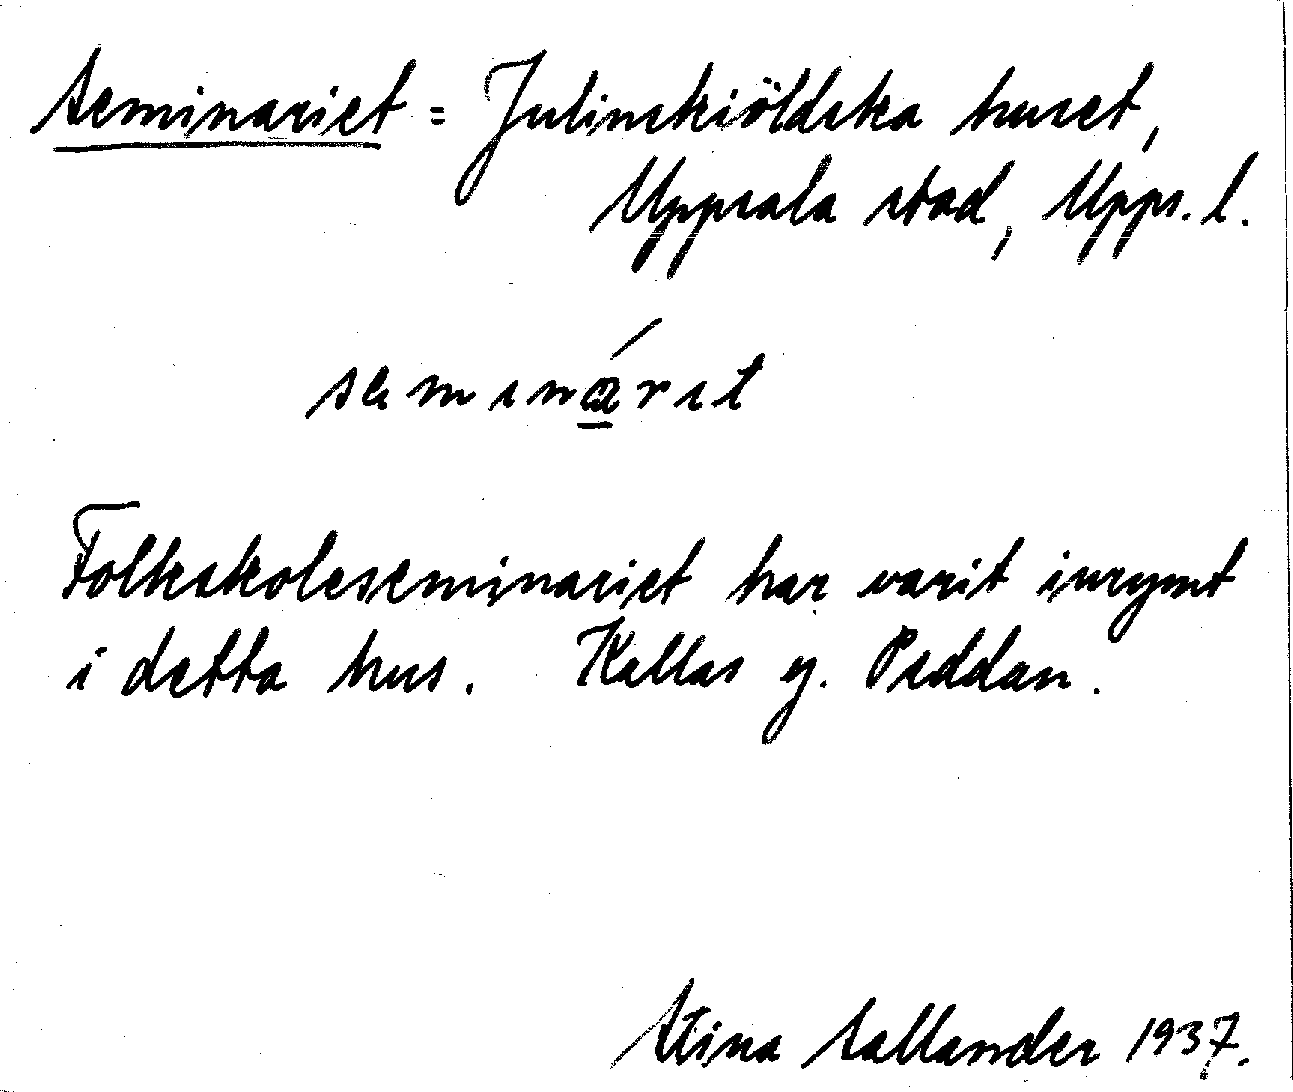 Seminariet = Julinskiöldska huset,
Uppsala stad, Upps. l.
seminárit
Folkskoleseminariet har varit inrymt
i detta hus. Kallas ej. Peddan.
Stina Sallander 1937.